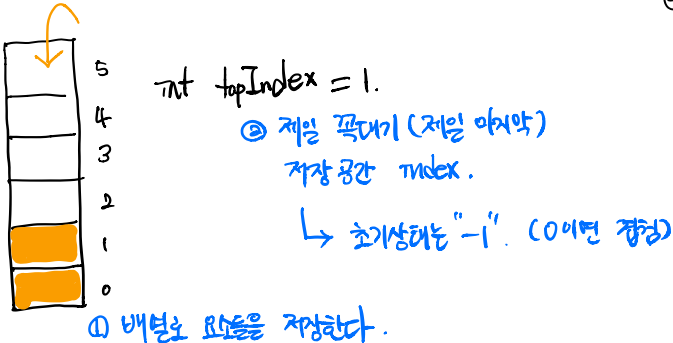 5
int topIndex = 1.
4
② 제일 꼭대기 (제일 마지막)
3
저장 공간 index.
2
↳ 초기상태는 "-1". (0이면 겹침)
1
0
① 배열로 요소들을 저장한다.